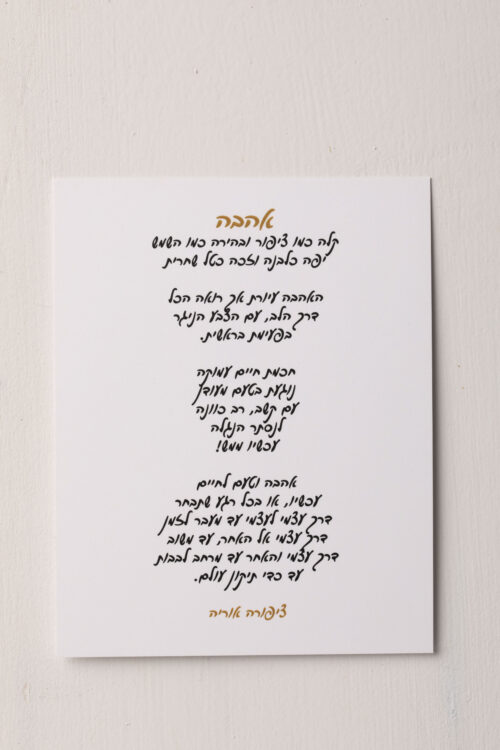 אהבה
קלה כמו ציפור ובהירה כמו השמש
יפה כלבנה וזכה כטל שחרית
האהבה עיורת אך רואה הכל
דרך הלב, עם הצבע הניגר
בפעימת בראשית.
חכמת חיים עמוקה
נוגעת בטעם מעודן
עם קשב, רב כוונה
לנסתר הנגלה
עכשיו ממש!
אהבה וטעם לחיים
עכשיו, או בכל רגע שתבחר
דרך עצמי לעצמי עד מעבר לזמן
דרך עצמי אל האחר, עד משוב
דרך עצמי והאחר עד מרחב לבבות
עד כדי תיקון עולם.
ציפורה אוריה